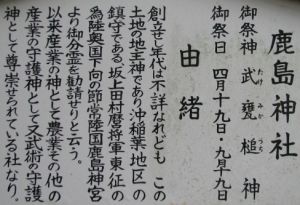 鹿島神社
御祭神 武甕槌神
たけ みか つち
御祭日 四月十九日・九月十九日
由緒
創立せし年代は不詳なれども この
土地の地主神であり沖稲葉地区の
鎮守である、坂上田村麿将軍東征の
為陸奥国下向の節常陸国鹿島神宮
より御分霊を勧請せりと云う。
以来産業の神として農業その他の
産業の守護神として又武術の守護
神として尊崇せられている社なり。